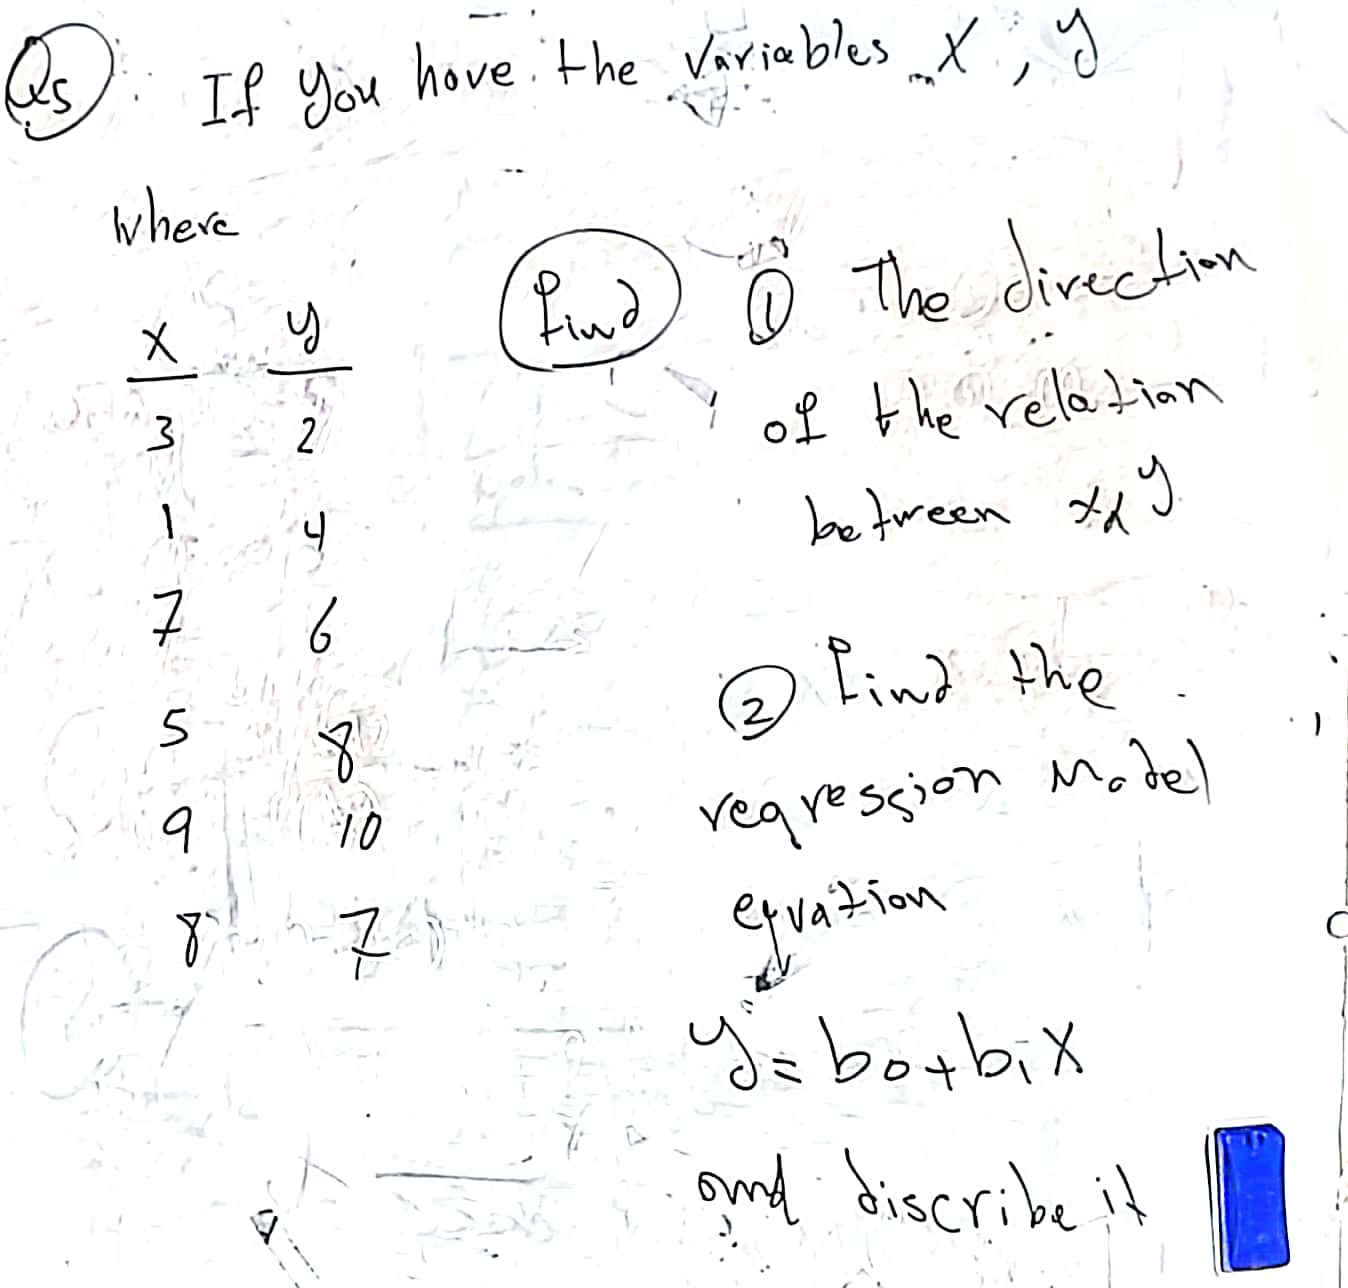 Qs: If you have the variables X, y
where
x y
3 2
1 4
7 6
5 8
9 10
8 7
find ① The direction
of the relation
between x & y
② find the
regression Model
equation
y = b0 + b1 X
and discribe it